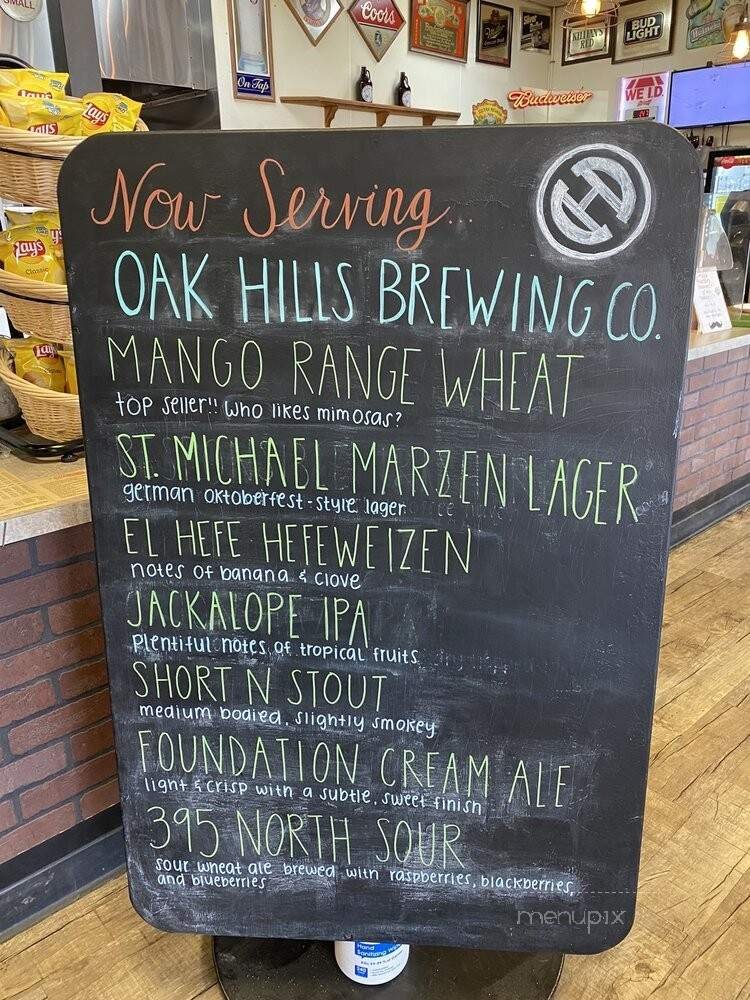 SMALL
Coors
On Tap
KILLIAN'S
RED
BUD
LIGHT
Budweiser
WE I.D.
Lay's
Lay's
Lay's
Lay's
Classic
Lay's
Now Serving...
OAK HILLS BREWING CO.
MANGO RANGE WHEAT
top seller!! who likes mimosas?
ST. MICHAEL MARZEN LAGER
german oktoberfest-style lager
EL HEFE HEFEWEIZEN
notes of banana & clove
JACKALOPE IPA
Plentiful notes of tropical fruits
SHORT N STOUT
medium bodied, slightly smokey
FOUNDATION CREAM ALE
light & crisp with a subtle, sweet finish
395 NORTH SOUR
sour wheat ale brewed with raspberries, blackberries,
and blueberries
menupix
Hand
Sanitizing